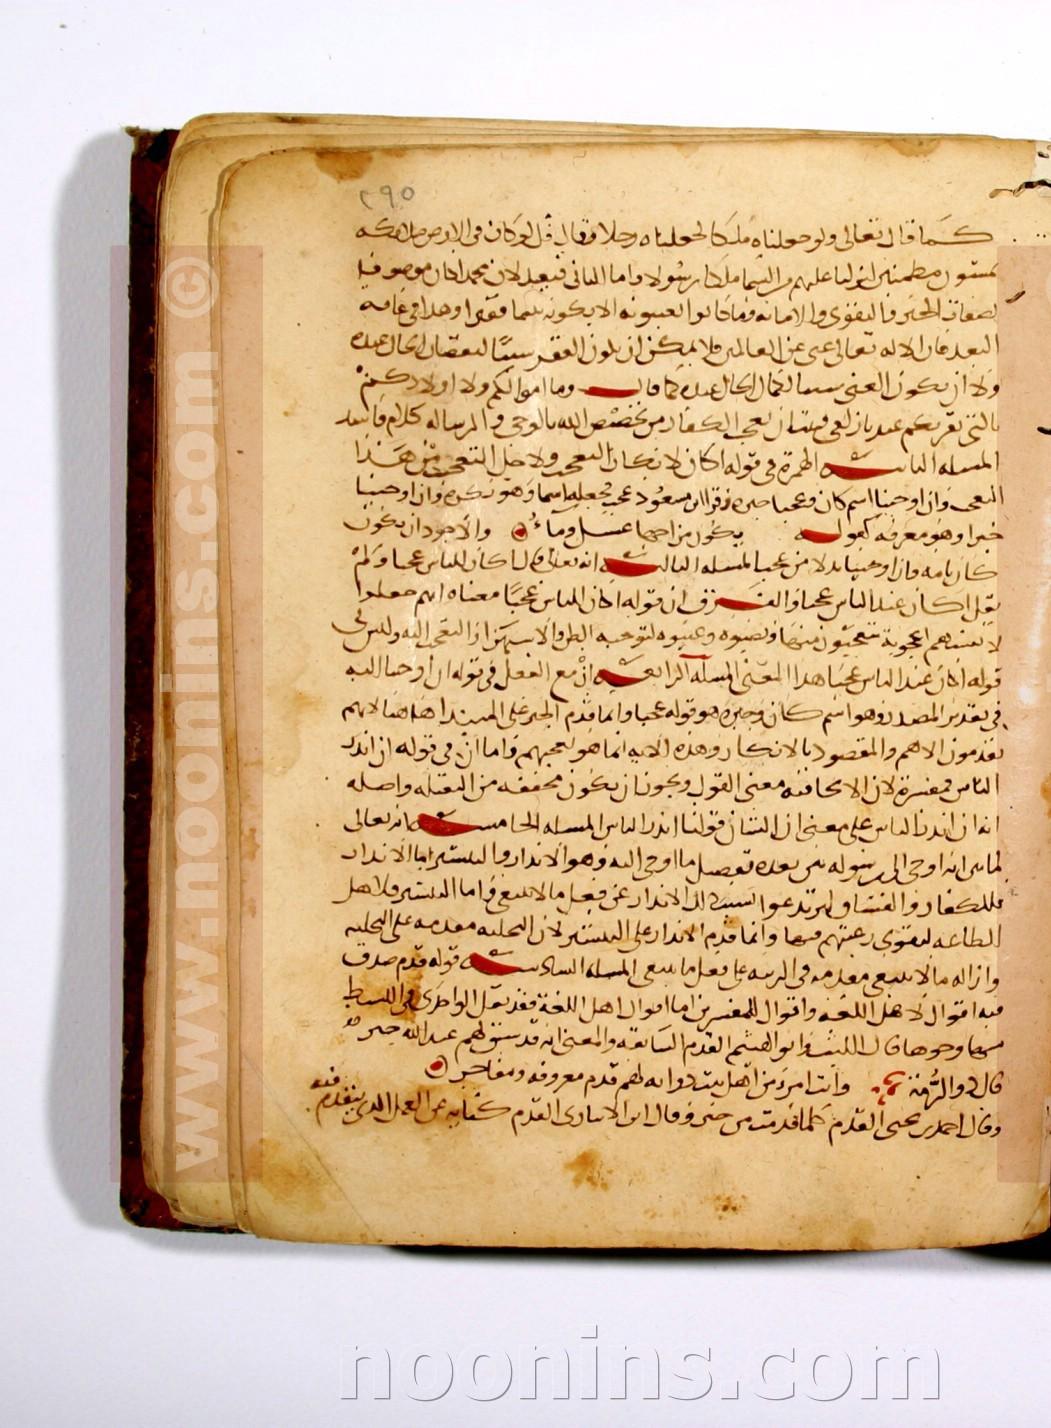 ٢٩٥
كما قال تعالى ولو جعلناه ملكا لجعلناه رجلا وقال قل لو كان في الارض ملائكة
يمشون مطمئنين لنزلنا عليهم من السما ملكا رسولا واما الثاني فبعيد لان محمدا كان موصوفا
بصفات الخير والتقوى والامانة وما كانوا يعيبونه الا بكونه يتيما فقيرا وهذا في غاية
البعد فان الاله تعالى غني عن العالمين فلا يمكن ان يكون الفقر سببا لنقصان الحال عنده
ولا ان يكون الغنى سببا لكمال الحال عنده كما قال وما اموالكم ولا اولادكم
بالتي تقربكم عندنا زلفى فثبت ان تعجب الكفار من تخصيص الله بالوحي والرسالة كلام فاسد
المسلة الثانية الهمزة في قوله اكان لانكار التعجب ولاجل التعجيب من هذا
التعجب وان اوحينا اسم كان وعجبا خبره وقرا ابن مسعود عجب فجعله اسما وهو نكرة وان اوحينا
خبرا وهو معرفة كقوله يكون مزاجها عسل وماء والاجود ان يكون
كان تامة وان اوحينا بدلا من عجب المسلة الثالثة انه تعالى قال اكان للناس عجبا ولم
يقل اكان عند الناس عجبا والفرق ان قوله اكان للناس عجبا معناه انهم جعلوه
لانفسهم اعجوبة يتعجبون منها ونصبوه وعينوه لتوجيه الطيرة والاستهزاء والتعجب اليه وليس في
قوله اكان عند الناس عجبا هذا المعنى المسلة الرابعة ان مع الفعل في قوله ان اوحينا اليه
في تقدير المصدر وهو اسم كان وخبره هو قوله عجبا وانما قدم الخبر على المبتدا هاهنا لانهم
يقدمون الاهم والمقصود بالانكار وهذه الاية انما هو تعجبهم واما ان في قوله ان انذر
الناس فمفسرة لان الايحا فيه معنى القول ويجوز ان يكون مخففة من الثقيلة واصله
انه ان انذر الناس على معنى ان الشان قولنا انذر الناس المسلة الخامسة انه تعالى
لما بين انه اوحى الى رسوله بين بعده تفصيل ما اوحى اليه وهو الانذار والتبشير اما الانذار
فللكفار والفساق ليرتدعوا بسبب ذلك الانذار عن فعل ما لا ينبغي واما التبشير فلاهل
الطاعة لتقوى رغبتهم فيها وانما قدم الانذار على التبشير لان التخلية مقدمة على التحلية
وازالة ما لا ينبغي مقدمة في الرتبة على فعل ما ينبغي المسلة السادسة قوله قدم صدق
فيه اقوال لاهل اللغة واقوال للمفسرين اما اقوال اهل اللغة فقد نقل الواحدي في البسيط
منها وجوها قال الليث وابو الهيثم القدم السابقة والمعنى انه قد سبق لهم عند الله خير
قال ذو الرمة وانت امرؤ من اهل بيت ذوابة لهم قدم معروفة ومفاخر
وقال احمد بن يحيى القدم كلما قدمت من خير وقال ابن الانباري القدم كناية عن العمل الذي يتقدم فيه
www.noonins.com ©
noonins.com